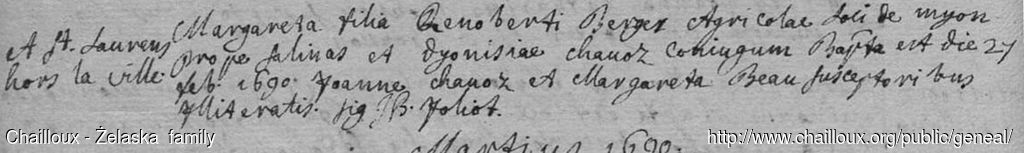 Margareta filia Renoberti Berger Agricolae loci de myon
et St. Laurens
prope salinas et dyonisiae chavoz coniugum Bapta est die 27
hors la ville
feb. 1690. Joanne chavoz et Margareta Beau susceptoribus
illiteratis. sig JB. Joliot.
Martius 1690.
Chailloux - Żelaska family
http://www.chailloux.org/public/geneal/